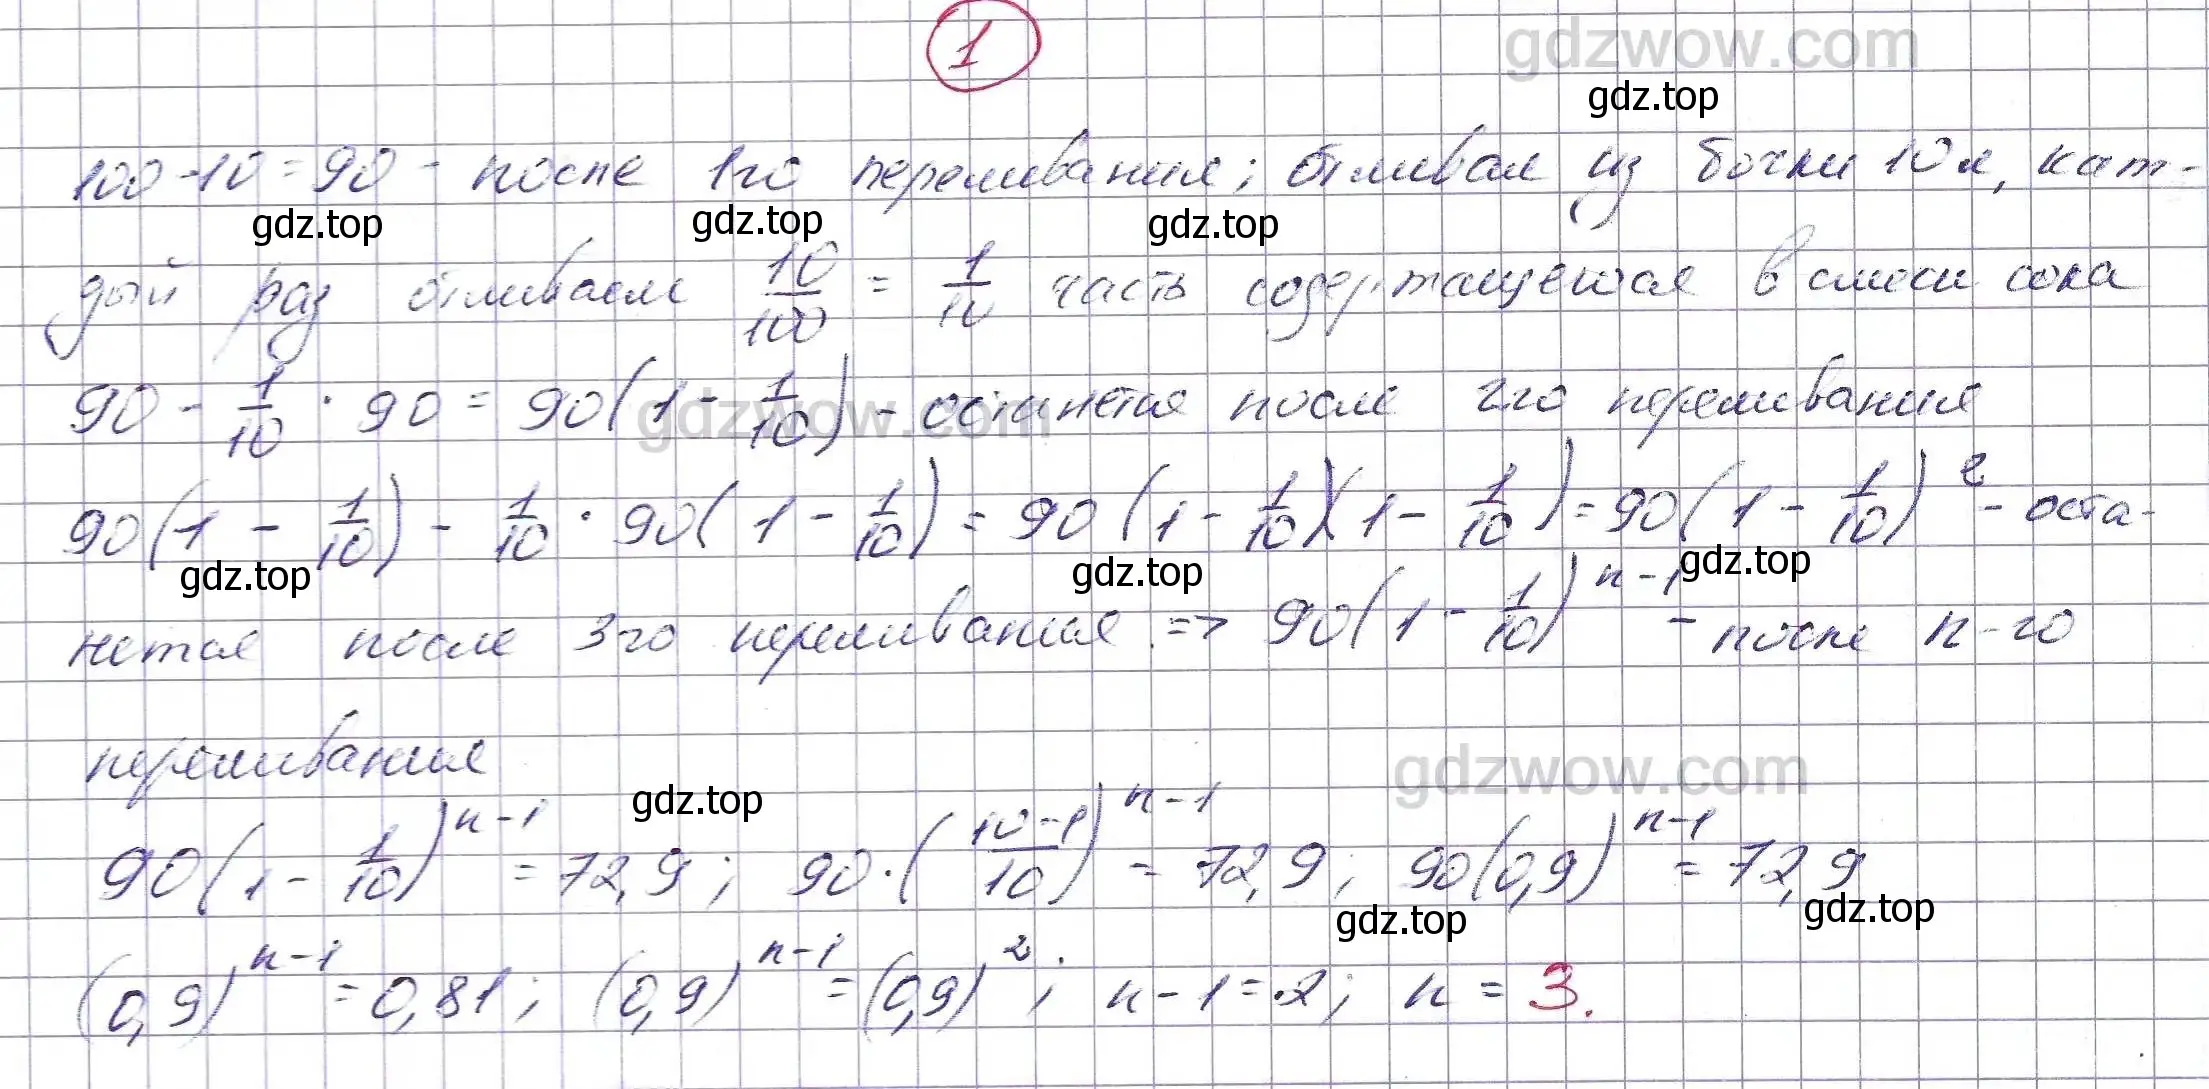 1
gdzwow.com
gdz.top
100-10=90 - после 1го переливания; отливал из бочки 10л, каж-
gdz.top gdz.top gdz.top
дый раз отливаем 10/100 = 1/10 часть содержащегося в смеси сока
90 - 1/10 · 90 = 90(1 - 1/10) - останется после 2го переливания
gdzwow.com
90(1 - 1/10) - 1/10 · 90(1 - 1/10) = 90(1 - 1/10)(1 - 1/10) = 90(1 - 1/10)² - оста-
gdz.top gdz.top gdz.top
нется после 3го переливания => 90(1 - 1/10)ⁿ⁻¹ - после n-го
переливания
gdzwow.com
gdz.top
90(1 - 1/10)ⁿ⁻¹ = 72,9; 90·((10-1)/10)ⁿ⁻¹ = 72,9; 90(0,9)ⁿ⁻¹ = 72,9
gdz.top gdz.top
(0,9)ⁿ⁻¹ = 0,81; (0,9)ⁿ⁻¹ = (0,9)²; n-1=2; n = 3.